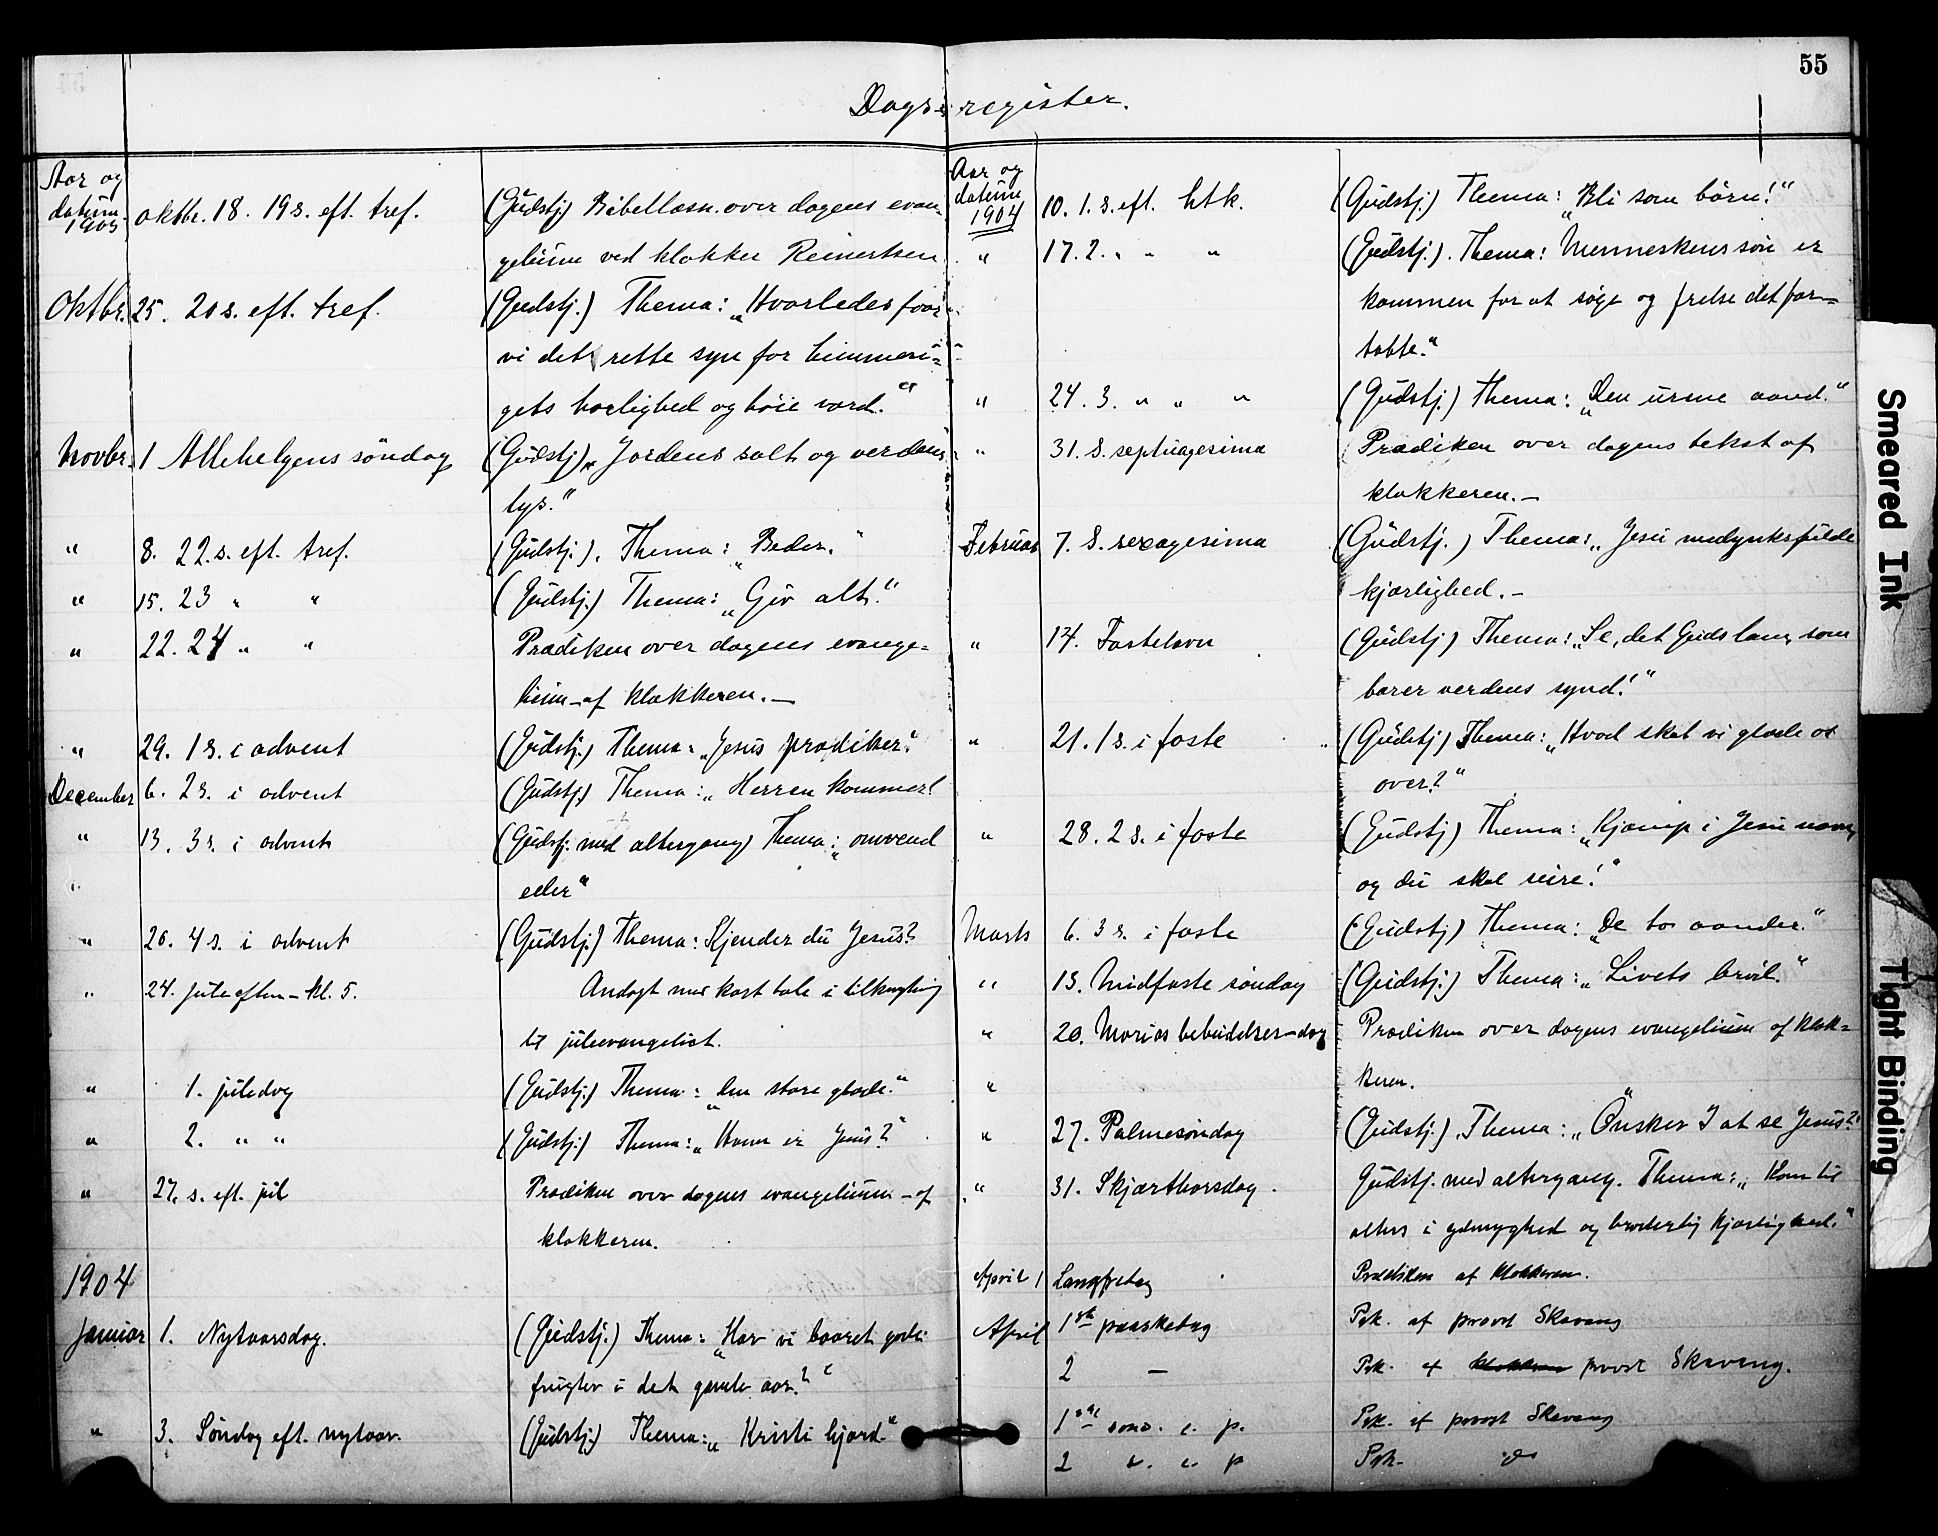 55
Dags-register.
Aar og
datum.
1903
oktbr. 18. 19 s. eft. tref.
(Gudstj) Bibellæsn. over dagens evan-
gelium ved klokker Reinertsen
Oktbr. 25. 20 s. eft. tref.
(Gudstj.) Thema: „Hvorledes faar
vi det rette syn for himmeri-
gets herlighed og høie værd.“
Novbr. 1 Allehelgens søndag
(Gudstj) „Jordens salt og verdens
lys.“
" 8. 22. s. eft. tref.
(Gudstj.). Thema: „Beder.“
" 15. 23 " "
(Gudstj.) Thema: „Giv alt.“
" 22. 24 " "
Prædiken over dagens evange-
lium - af klokkeren. —
" 29. 1 s. i advent
(Gudstj.) Thema: „Jesus prædiker“.
December 6. 2 s. i advent
(Gudstj.) Thema: „Herren kommer!
" 13. 3 s. i advent
(Gudstj. med altergang) Thema: „omvend
eder“
" 20. 4 s. i advent
(Gudstj.) Thema: Kjender du Jesus?
" 24. juleaften - kl. 5.
Andagt med kort tale i tilknytning
til juleevangeliet.
" 1. juledag
(Gudstj.) Thema: „Den store glæde.“
" 2. " "
(Gudstj.) Thema: „Hvem er Jesus?“
" 27. s. eft. jul
Prædiken over dagens evangelium - af
klokkeren.
1904
Januar 1. Nytaarsdag.
(Gudstj.) Thema: „Har vi baaret gode
frugter i det gamle aar?“
" 3. Søndag eft. nytaar.
(Gudstj.) Thema: „Kristi hjord“
Aar og
datum
1904
10. 1. s. eft. htk.
(Gudstj.) Thema: „Bli som børn!“
" 17. 2. " " "
(Gudstj.). Thema: Menneskens søn er
kommen for at søge og frelse det for-
tabte.“
" 24. 3. " " "
(Gudstj.) Thema: „Den urene aand.“
" 31. S. septuagesima
Prædiken over dagens tekst af
klokkeren. —
Februar 7. S. sexagesima
(Gudstj.) Thema: „Jesu medynksfulde
kjærlighed. —
" 14. Fastelavn
(Gudstj) Thema: „Se, det Guds lam, som
bærer verdens synd!“
" 21. 1 s. i faste
(Gudstj) Thema: „Hvad skal vi glæde os
over?“
" 28. 2 s. i faste
(Gudstj) Thema: „Kjæmp i Jesu navn,
og du skal seire!“
Marts 6. 3 s. i faste
(Gudstj) Thema: „De to aander.“
" 13. Midfaste søndag
(Gudstj.) Thema: „Livets brød.“
" 20. Marias bebudelses-dag
Prædiken over dagens evangelium af klok-
" keren.
" 27. Palmesøndag
(Gudstj.). Thema: „Ønsker I at se Jesus?“
" 31. Skjærthorsdag.
Gudstj. med altergang. Thema: „Kom til
alters i ydmyghed og broderlig kjærlighed.“
April 1 Langfredag
Prædiken af klokkeren.
April 1ste paaskedag
Prk. af provst Skavang
2 —
Prk. af klokkeren provst Skavang.
1ste sønd. e. p.
Prk. af provst Skavang
2 " e. p
Prk. do
Smeared Ink
Tight Binding